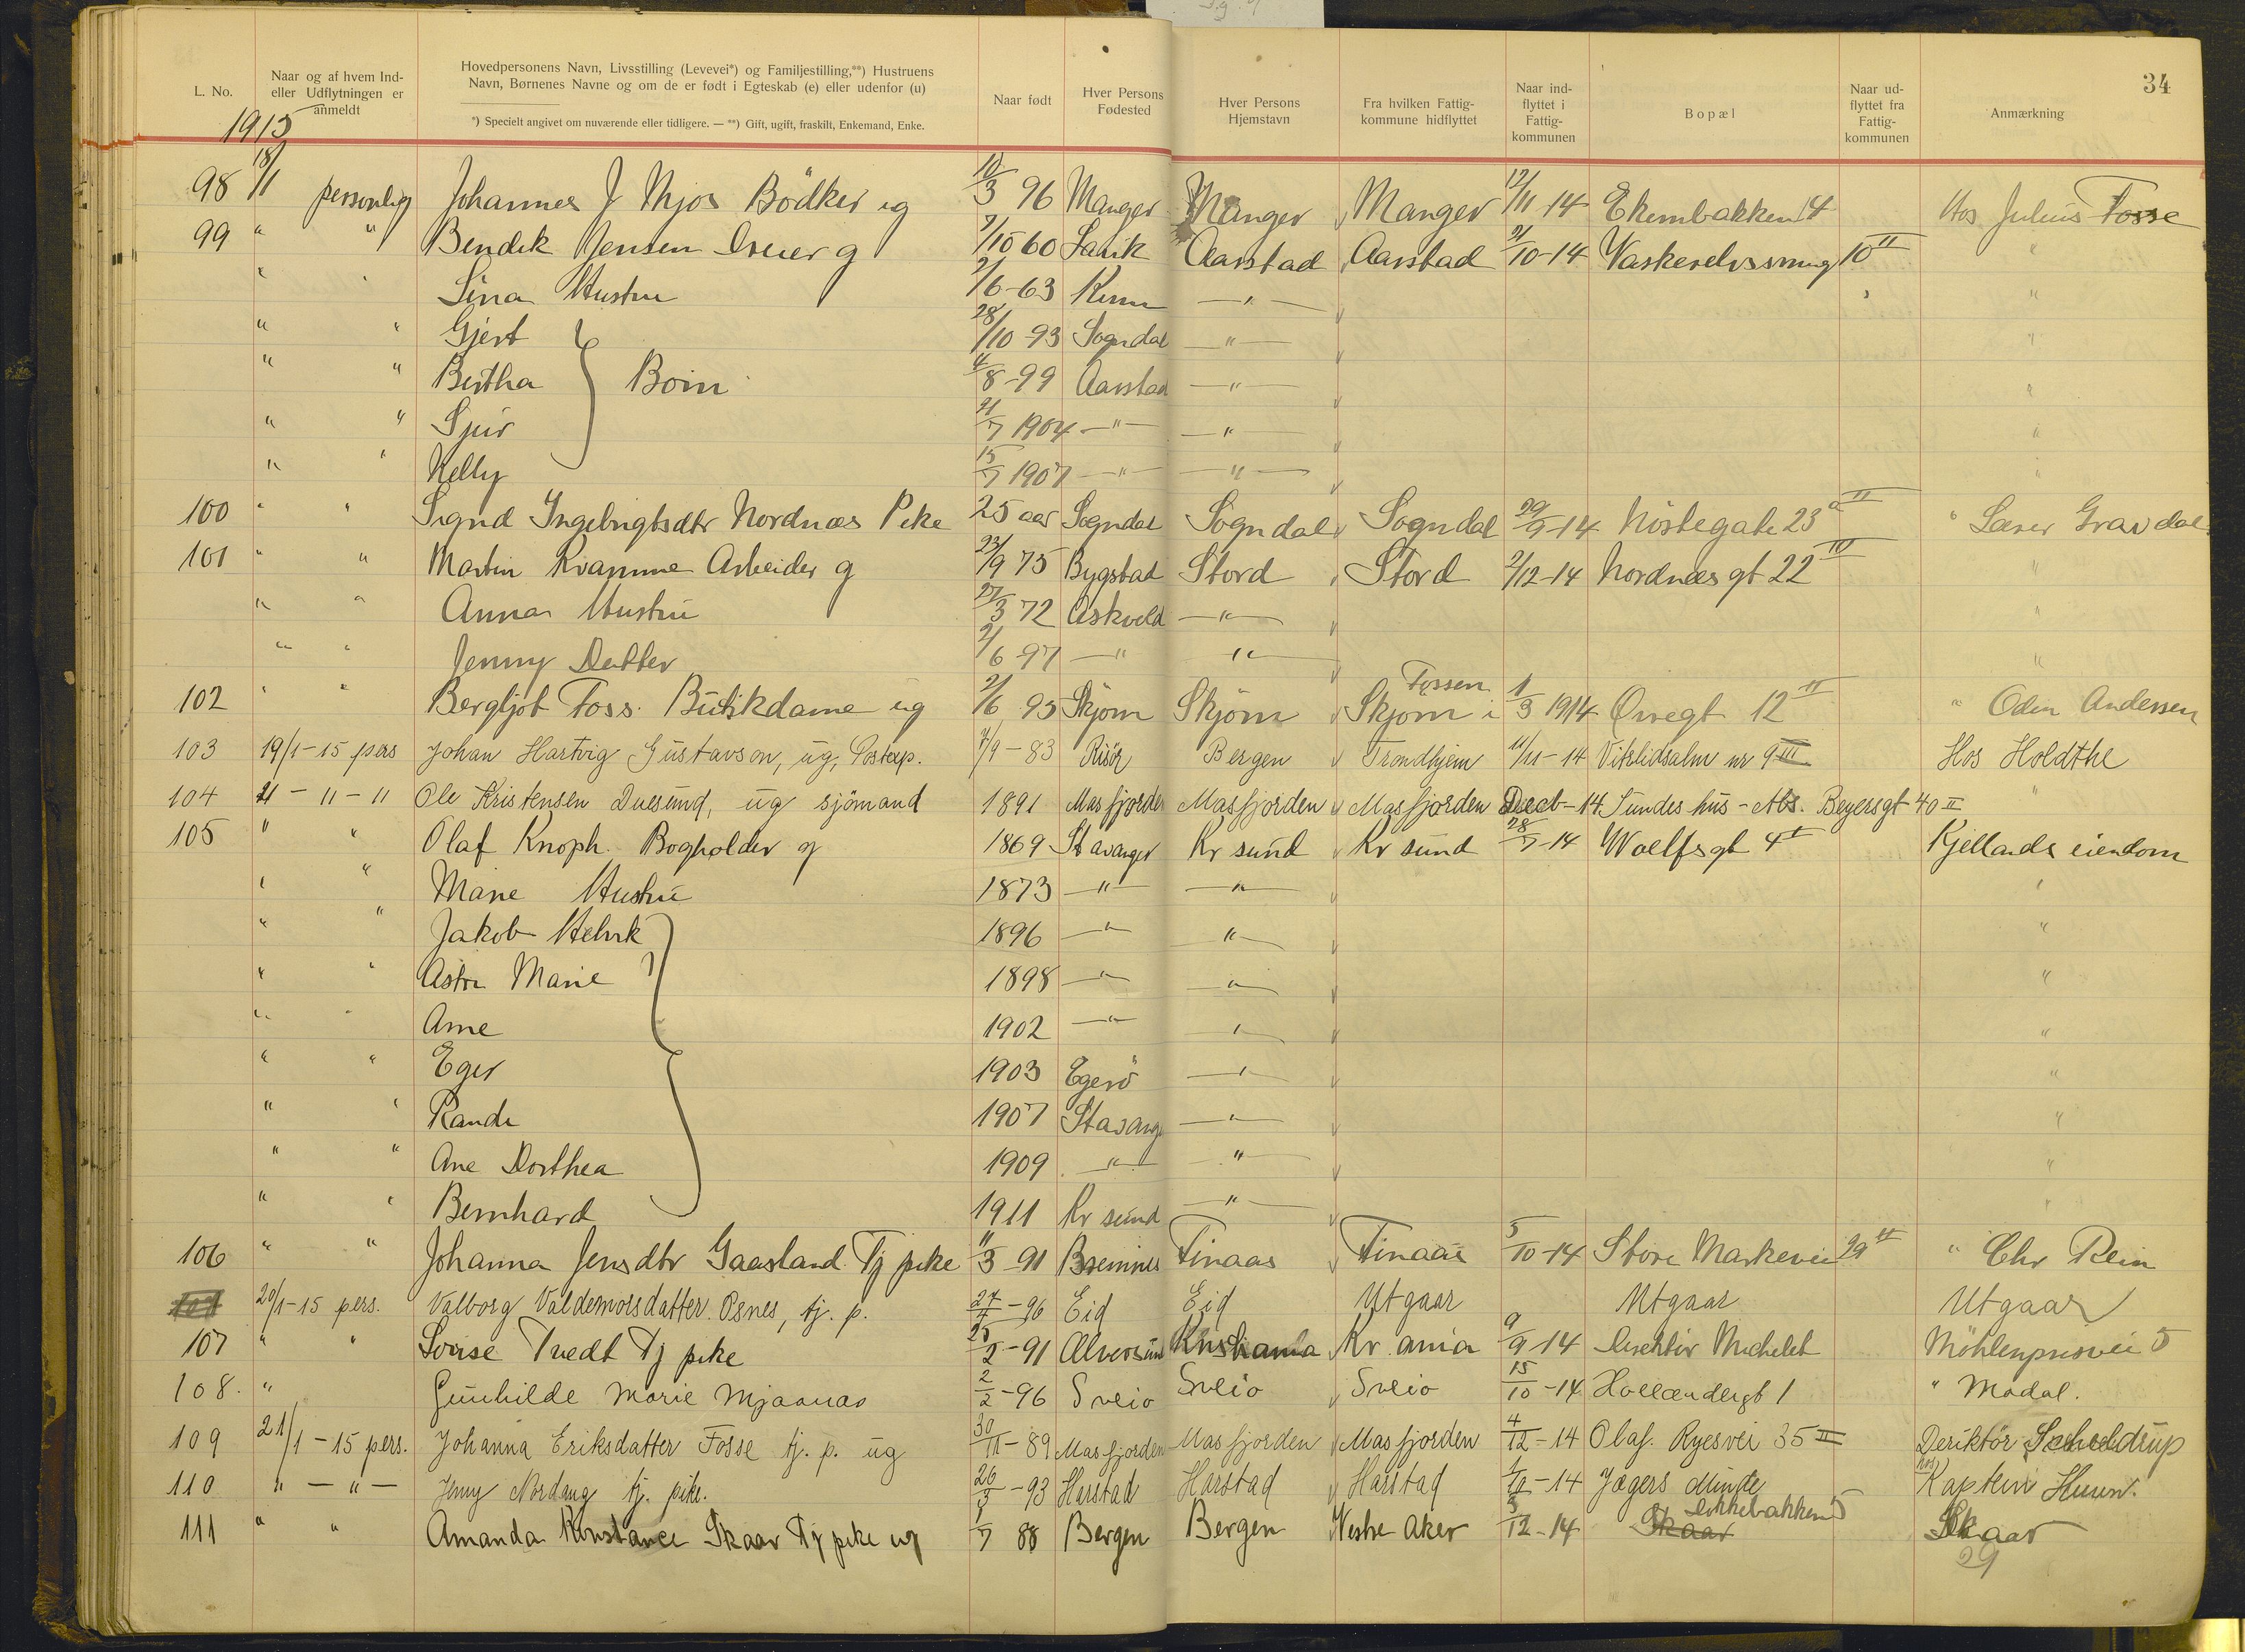 34
L. No.
Naar og af hvem Ind- eller Udflytningen er anmeldt
Hovedpersonens Navn, Livsstilling (Levevei*) og Familjestilling,**) Hustruens Navn, Børnenes Navne og om de er født i Egteskab (e) eller udenfor (u)
*) Specielt angivet om nuværende eller tidligere. — **) Gift, ugift, fraskilt, Enkemand, Enke.
Naar født
Hver Persons Fødested
Hver Persons Hjemstavn
Fra hvilken Fattig- kommune hidflyttet
Naar ind- flyttet i Fattig- kommunen
Bopæl
Naar ud- flyttet fra Fattig- kommunen
Anmærkning
1915
98 18/1 personlig Johannes J Mjos Bödker ug 10/3 96 Manger Manger Manger 12/11 14 Ekernbakken 4 Hos Julius Fosse
99 " " Bendik Jensen g 7/10 60 Aarstad Aarstad 9/10-14 10 II "
" " Lina Hustru 2/6-63 Kinn —"— "
" " Gjert 28/10 93 Sogndal —"— "
" " Bertha } Börn 4/8-99 Aarstad —"— "
" " Sjur 21/7 1904 —"— —"— "
" " Nelly 15/7 1907 —"— —"— "
100 " " Signd Ingebrigtsdtr Nordnæs Pike 25 aar Sogndal Sogndal Sogndal 29/9-14 Nöstegate 23 a II " Gravdal
101 " " Martin Kvamme Arbeider g 23/9 75 Bygstad Stord Stord 2/12-14 Nordnæsgt 22 III "
" " Anna Hustru 27/3 72 Askvold —"— "
" " Jenny Datter 2/6 97 —"— "
102 " " Bergljot Foss. Butikdame ug 2/6 95 Skjorn Skjorn Skjorn i Fossen 1/3 1914 Öwregt 12 II " Odin Andersen
103 19/1-15 pers Johan Hartvig Gustavson, ug, Postexp. 7/9-83 Risör Bergen Trondhjem 11/11-14 Vitalidsalm nr 9 III Hos Holdthe
104 21 - 11 - 11 Ole Kristensen Duesund, ug sjömand 1891 Masfjorden Masfjorden Masfjorden Decb-14 Sundes hus - Abs. Beyersgt 40 II "
105 " " Olaf Knoph. Bogholder g 1869 Stavanger Kr sund Kr sund 28/7-14 Wolffsgt 4 I Kjellands eiendom
" " Marie Hustru 1873 —"— —"— "
" " Jakob 1896 —"— —"— "
" " Astri Marie 1898 —"— —"— "
" " Arne 1902 —"— —"— "
" " Eger 1903 Egerö —"— "
" " Randi 1907 Stavanger —"— "
" " Ane Dorthea 1909 —"— —"— "
" " Bernhard 1911 Kr sund —"— "
106 " " Johanna Jensdtr Gaasland Tj pike 11/3-91 Bremnes Finaas Finaas 5/10-14 Store Markevei 29 II " Chr Rein
107 20/1-15 pers. Valborg Valdemorsdatter Osnes, tj. p. 27/7-96 Eid Eid Utgaar Utgaar Utgaar
107 " " Lovise Tvedt Tj pike 25/2-91 Alversund Kristiania Kr. ania 9/9-14 Direktör Michelet Möhlenprisvei 5
108. " Gunhilde Marie Mjaanas 2/2-96 Sveio Sveio Sveio 15/10-14 Hollændergt 1 " Madal.
109 21/1-15 pers. Johanna Eriksdatter Fosse tj. p. ug 30/11-89 Masfjorden Masfjorden Masfjorden 4/12-14 Olaf. Ryesvei 35 II Deriktör Scheldrup
110 " — " — Jenny Nordaug tj. pike. 26/3-93 Harstad Harstad Harstad 1/10-14 Jægers Minde hos Kaptein
111 " " Amanda Konstance Skaar Tj pike ug 1/7 88 Bergen Bergen Vestre Aker 3/12-14 Skaar Lokkebakken 5 Skaar
29